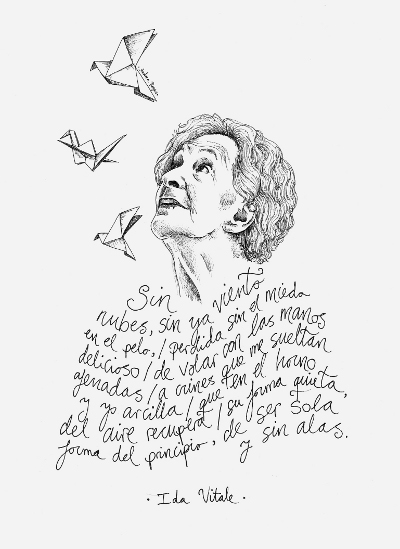 Sin
viento
nubes, sin ya
en el pelo, / perdida sin el miedo
delicioso / de volar con las manos
ajenadas / a crines que me sueltan
y yo arcilla / que en el horno
del aire recupera / su forma quieta,
forma del principio, de ser sola
y sin alas.
· Ida Vitale ·